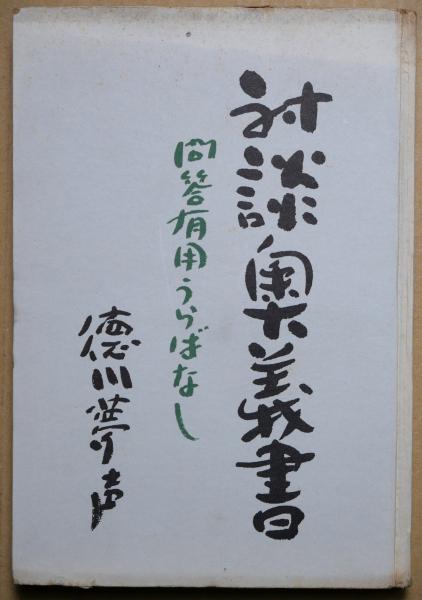 対談奥義書
問答有用うらばなし
徳川夢声